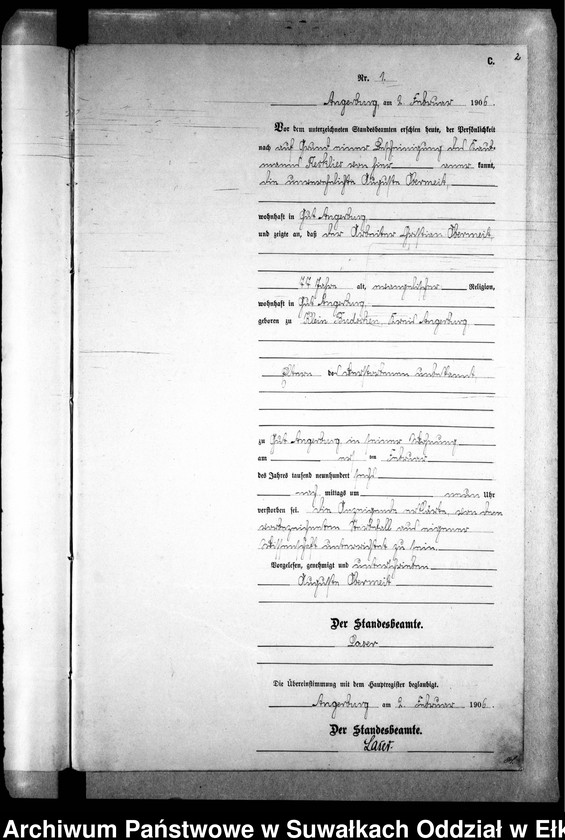 C.
2
Nr. 1.
Angerburg, am 2. Februar 1906.
Vor dem unterzeichneten Standesbeamten erschien heute, der Persönlichkeit
nach auf Grund einer Bescheinigung des Kauf-
manns von hier aner kannt,
die unverehelichte Auguste Obermeit,
wohnhaft in Gut Angerburg,
und zeigte an, daß der Arbeiter Christian Obermeit,
77 Jahre alt, evangelischer Religion,
wohnhaft in Gut Angerburg,
geboren zu Klein Kreis Angerburg
Eltern des Verstorbenen unbekannt,
zu Gut Angerburg in seiner Wohnung
am ten Februar
des Jahres tausend neunhundert sechs
nach mittags um neun Uhr
verstorben sei. Die Anzeigende erklärte, von dem
vorbezeichneten Sterbefall aus eigener
Wissenschaft unterrichtet zu sein.
Vorgelesen, genehmigt und unterschrieben
Auguste Obermeit
Der Standesbeamte.
Laser
Die Übereinstimmung mit dem Hauptregister beglaubigt.
Angerburg am 2. Februar 1906.
Der Standesbeamte.
Laser.
Archiwum Państwowe w Suwałkach Oddział w Ełk